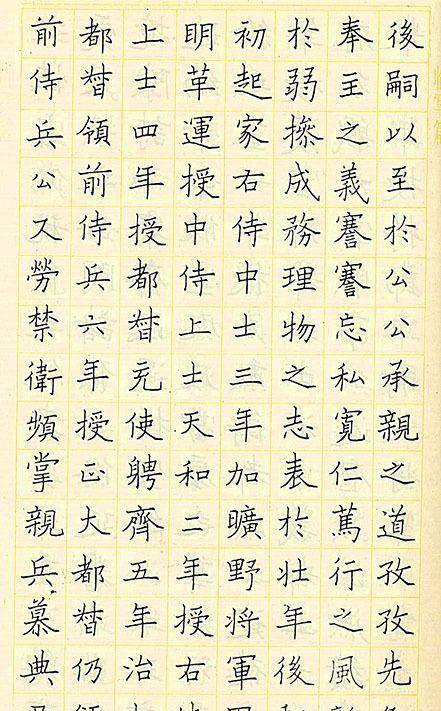 後嗣以至於公公承親之道孜孜先
奉主之義謇謇忘私寬仁篤行之風
於弱操成務理物之志表於壯年後
初起家右侍中士三年加曠野将軍
明革運授中侍上士天和二年授右
上士四年授都督充使聘齊五年治
都督領前侍兵六年授正大都督仍
前侍兵公又勞禁衛頻掌親兵慕典